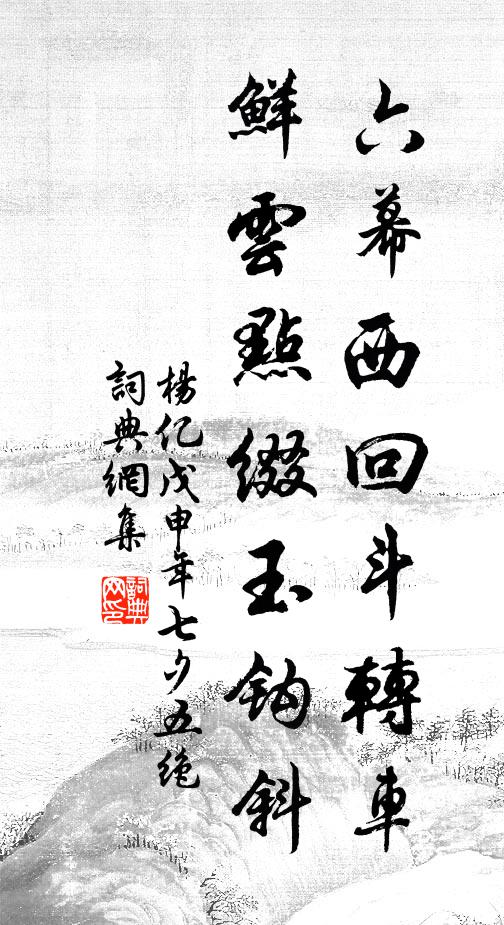 六幕西回斗轉車
鮮雲點綴玉鈎斜
楊亿戊申年七夕五绝
詞典網集
詞典
网印